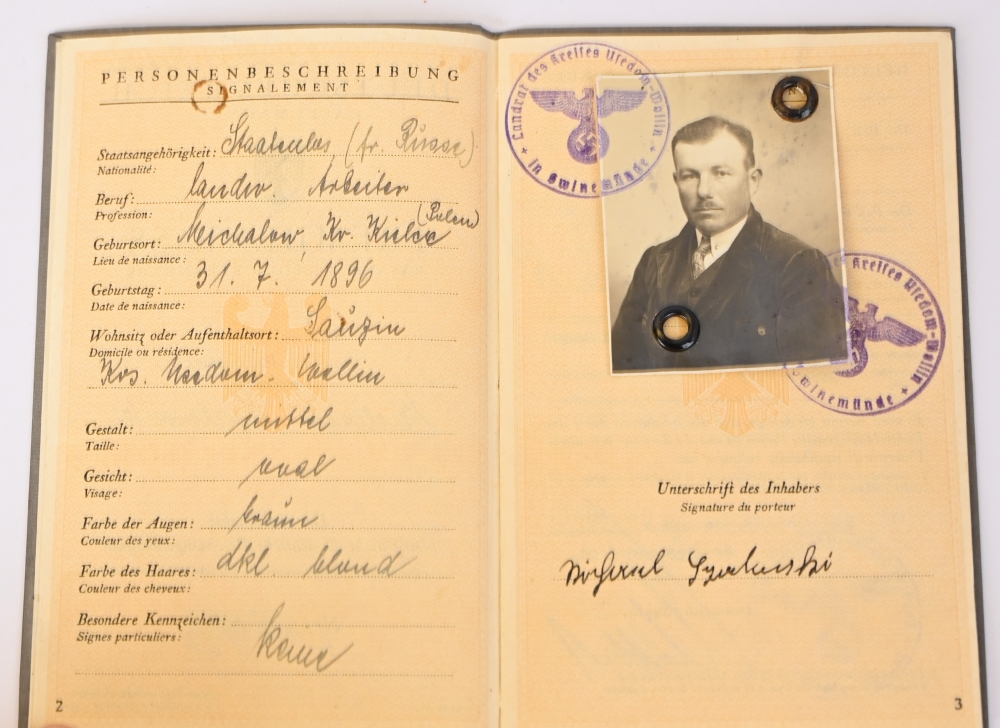 PERSONENBESCHREIBUNG
SIGNALEMENT
Staatsangehörigkeit: Staatenlos (fr. Russe)
Nationalité:
Beruf: landw. Arbeiter
Profession:
(Polen)
Geburtsort: Michalow, Kr. Kielce
Lieu de naissance:
Geburtstag: 31. 7. 1896
Date de naissance:
Wohnsitz oder Aufenthaltsort: Sauzin
Domicile ou résidence:
Krs. Usedom-Wollin
Gestalt: mittel
Taille:
Gesicht: oval
Visage:
Farbe der Augen: braun
Couleur des yeux:
Farbe des Haares: dkl. blond
Couleur des cheveux:
Besondere Kennzeichen:
Signes particuliers: keine
2
Landrat des Kreises Usedom-Wollin
in Swinemünde
Kreises Usedom-Wollin
Swinemünde
Unterschrift des Inhabers
Signature du porteur
3